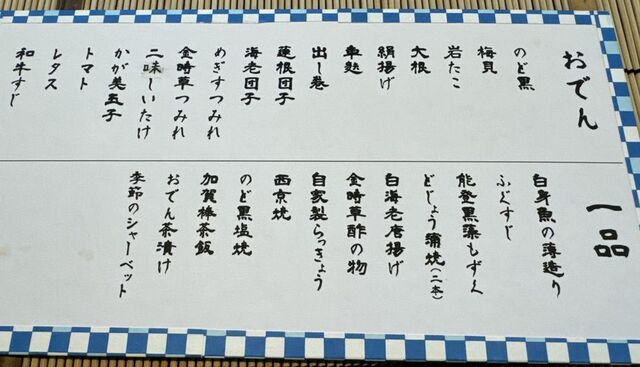 おでん
のど黒
梅貝
岩たこ
大根
絹揚げ
車麩
出し巻
蓮根団子
海老団子
めぎすつみれ
金時草つみれ
二味しいたけ
かが美玉子
トマト
レタス
和牛すじ
一品
白身魚の薄造り
ふぐすじ
能登黒藻もずく
どじょう蒲焼(二本)
白海老唐揚げ
金時草酢の物
自家製らっきょう
西京焼
のど黒塩焼
加賀棒茶飯
おでん茶漬け
季節のシャーベット